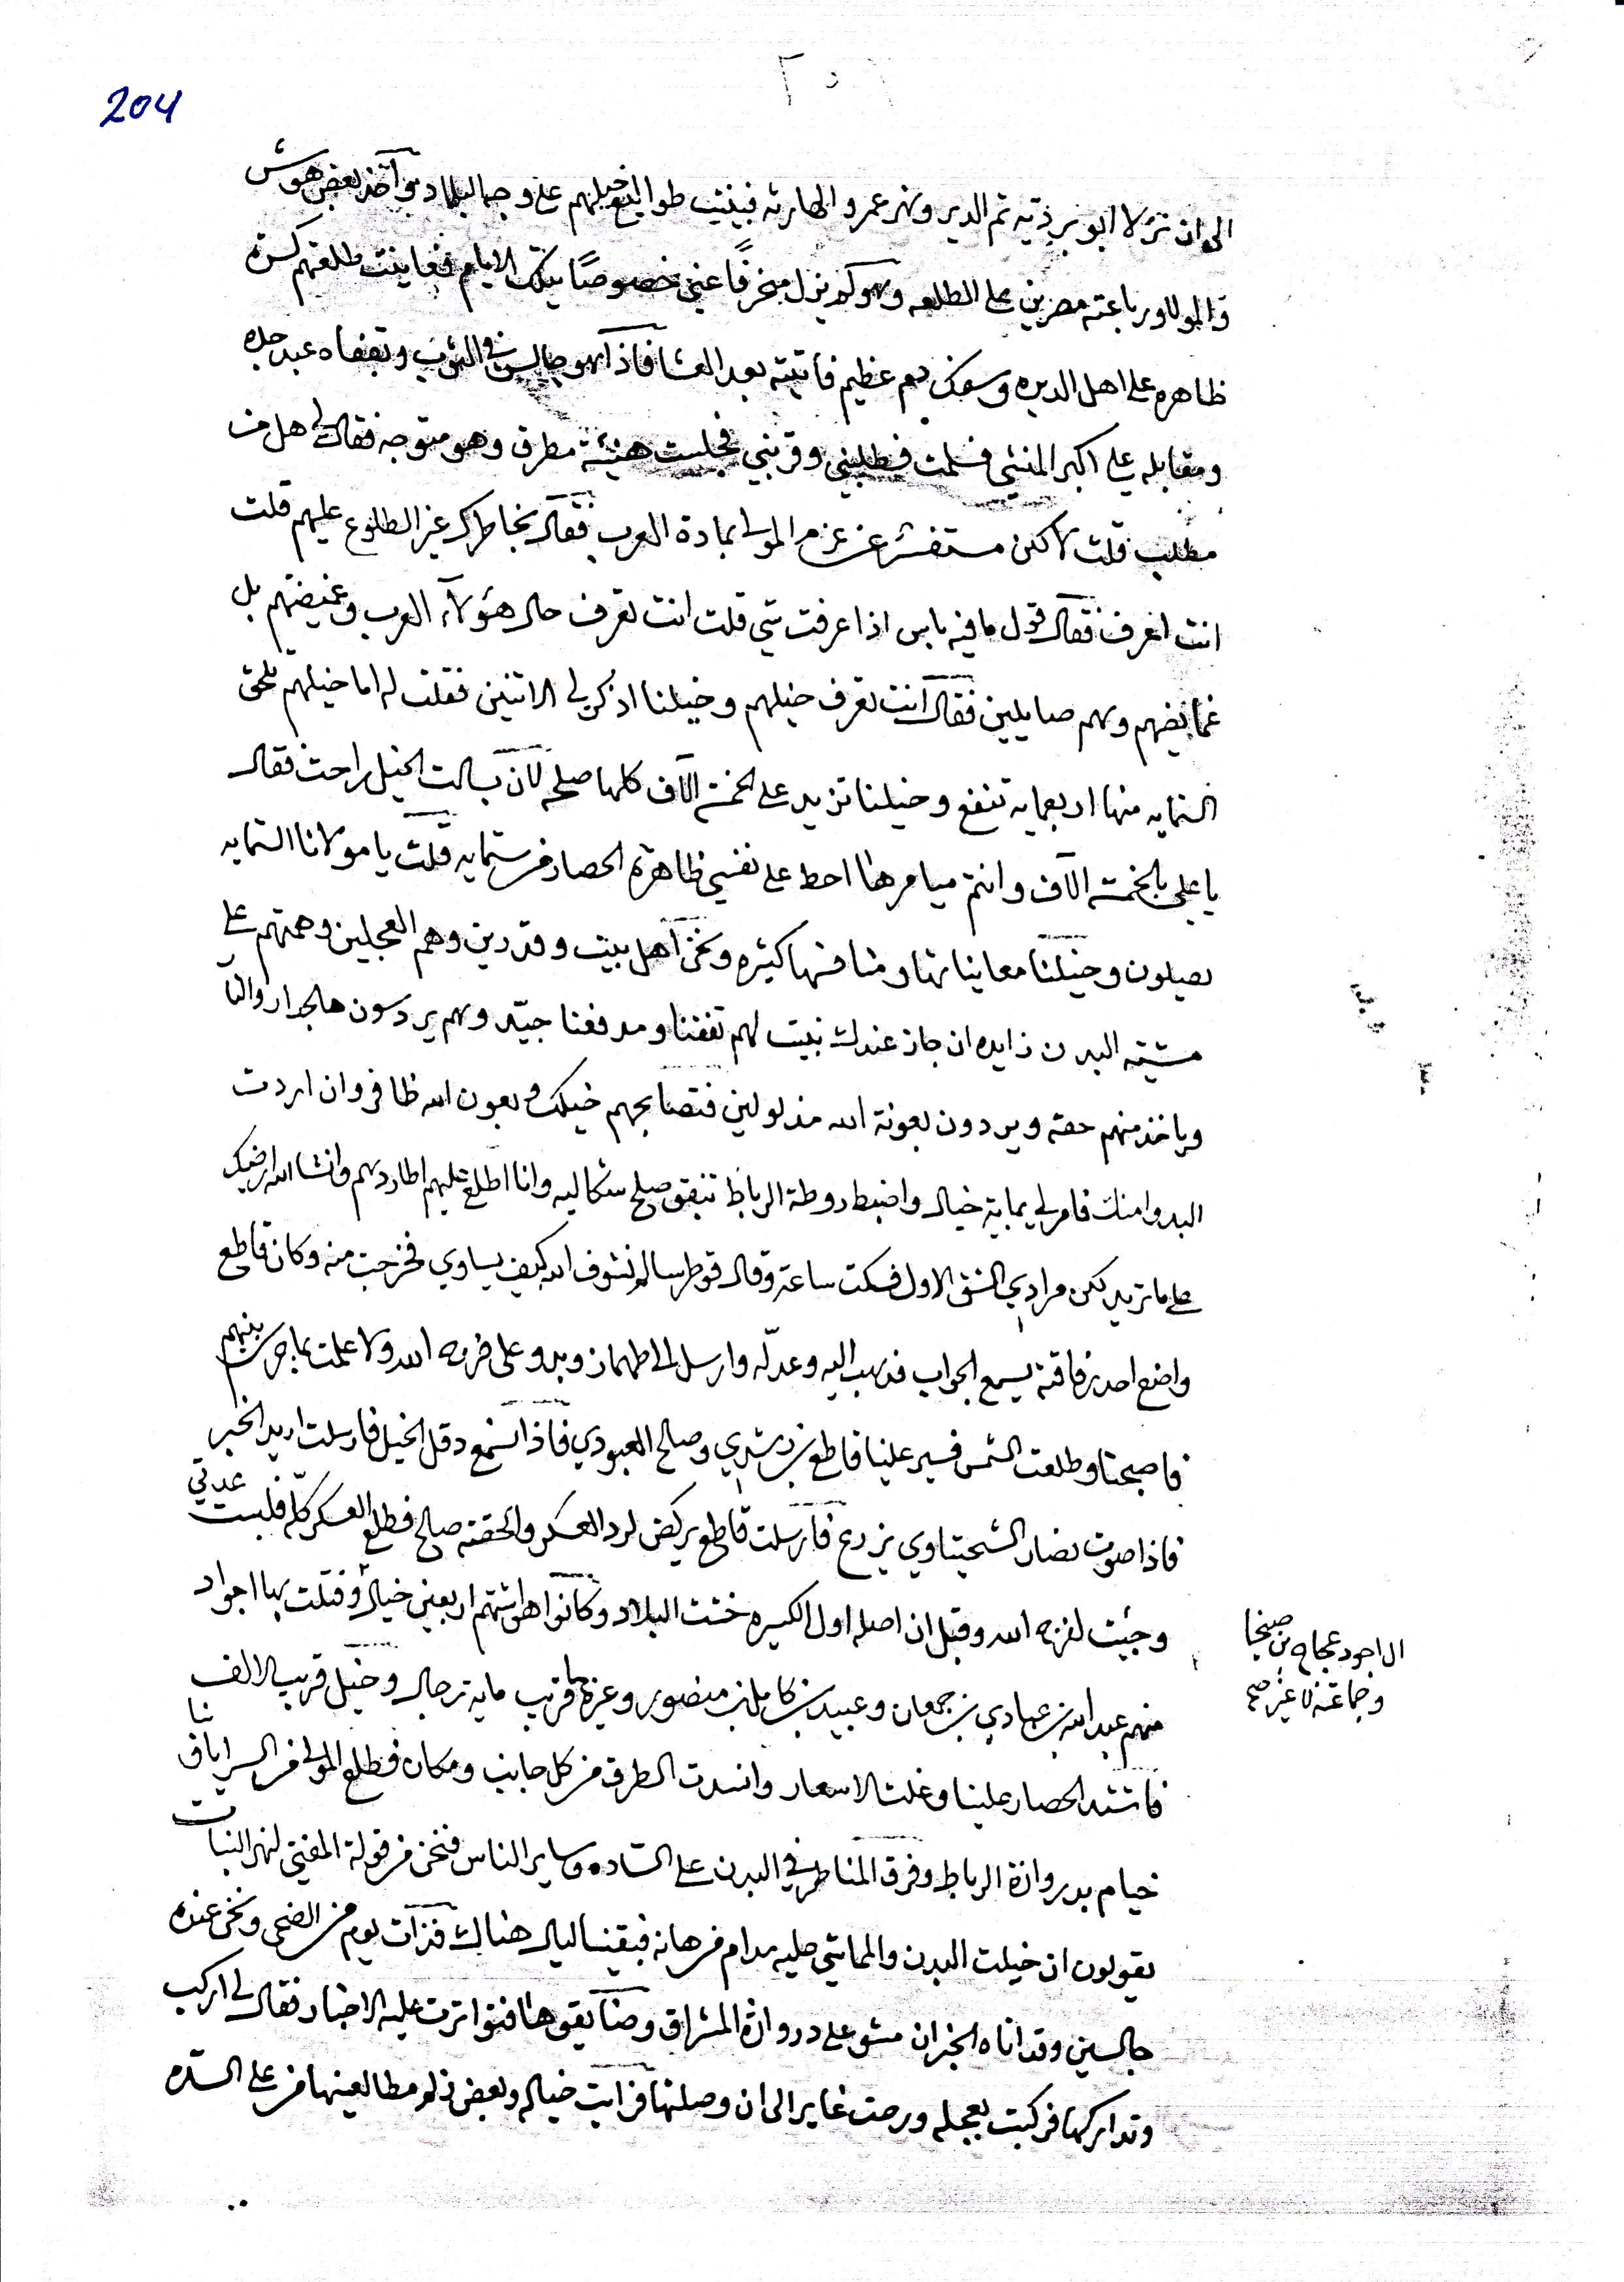 204
الى ان نزلا ابو بر ذيه ثم الدير ونهر عمر والحارثه فبينت طوالع خيلهم على وجه البلاد بتواخذ بعض هوش
والمولا ورباعته مصرين على الطلعه وهو كد ينزل منحرفًا عني خصوصًا بتلك الايام فعاينت طلعتهم كسرة
ظاهره على اهل الديره وسفك دم عظيم فاتيته بعد العشا فاذا هو جالس في الشرب وبقفاه عبد
ومقابله علي اكبر المنشي فسلمت فطلبني وقربني فجلست هنيئة مطرق وهو متوجه فقال لي هل من
مطلب قلت لاكن مستفسر عن عزم المولى بمادة العرب فقال بخاطرك عن الطلوع عليهم قلت
انت اعرف فقال قول ما فيه باس اذا عرفت شي قلت انت تعرف حال هؤلاء العرب وغميضتهم بل
غمايضهم وهم صايلين فقال انت تعرف خيلهم وخيلنا اذكر لي الاثنين فقلت له اما خيلهم تلحق
الثمايه منها اربعمايه تنفع وخيلنا تزيد على الخمسة الاف كلها صلحه لان بسالت الخيل راحت فقال
يا علي بالخمسة الاف وانتم ميامرها احط على نفسي ظاهرة الحصار من ستمايه قلت يا مولانا الستمايه
يصيلون وخيلنا معاينا تها ومنافسها كثيره ونحن اهل بيت وقد رين وهم العجلين وهمتهم على
مشيته البدن زايده ان جاز عندك نبيت لهم تفقنا ومدفعنا جيّد وهم يردسون هالجدار والنا
وياخذ منهم حقه ويردون بعونة الله مذلولين فتصابحهم خيلك وبعون الله ظافر وان اردت
البدو امنك فامر لي بماية خيال واضبط روطة الرباط تتبقى صلح شكاليه وانا اطلع عليهم اطاردهم وانشا الله ارضيك
على ما تريد لكن مرادي الشق الاول فسكت ساعة وقال قوطر سالم نشوف الله كيف يساوي فخرجت منه وكان قاطع
واضع احد رفاقته يسمع الجواب فذهب اليه وعدّله وارسل الى طهماز وبدو على فرجه الله ولا علمت بما جرى بينهم
فاصبحنا وطلعت الشمس فسير علينا قاطع بن رشدي وصالح العبودي فاذا نسمع دقل الخيل فارسلت اريد الخبر
فاذا صوت نصار الشحيتاوي يزرع فارسلت قاطع يركض لرد العسكر والحقته صالح فطلع العسكر كلّه فلبست عدتي
وجئت لفرجه الله وقيل ان اصله اول الكسيره خشت البلاد وكانوا هواشتهم اربعين خيال وقتلت بها اجواد
منهم عبد الله بن عبادي بن جمعان وعبيد بن كامل بن منصور وغيرها قريب مايه ترجال وخيل قريب الالف
فاشتد الحصار علينا وغلت الاسعار وانسدت الطرق من كل جانب ومكان فطلع المولى من السرايا
خيام بدروازة الرباط وفرق المناطر في البدن على السّاده وساير الناس فنحن من قولة المفتي لنهر النبات
يقولون ان خيلت البدن والماشي صليه مدام فرهانه فبقينا ليال هناك فذات يوم من الضحى ونحن عنده
جالسين وقد اتاه الخبر ان مشو على دروازة المشراق وضايقوها فتواترت عليه الاخبار فقال لي اركب
وتداركها فركبت بعجله ورحت غاير الى ان وصلتها فرايت خياله وبعض زلم مطالعينها من على السّده
ال اجود عجاج بن صيخا
وجماعته لا غير صح